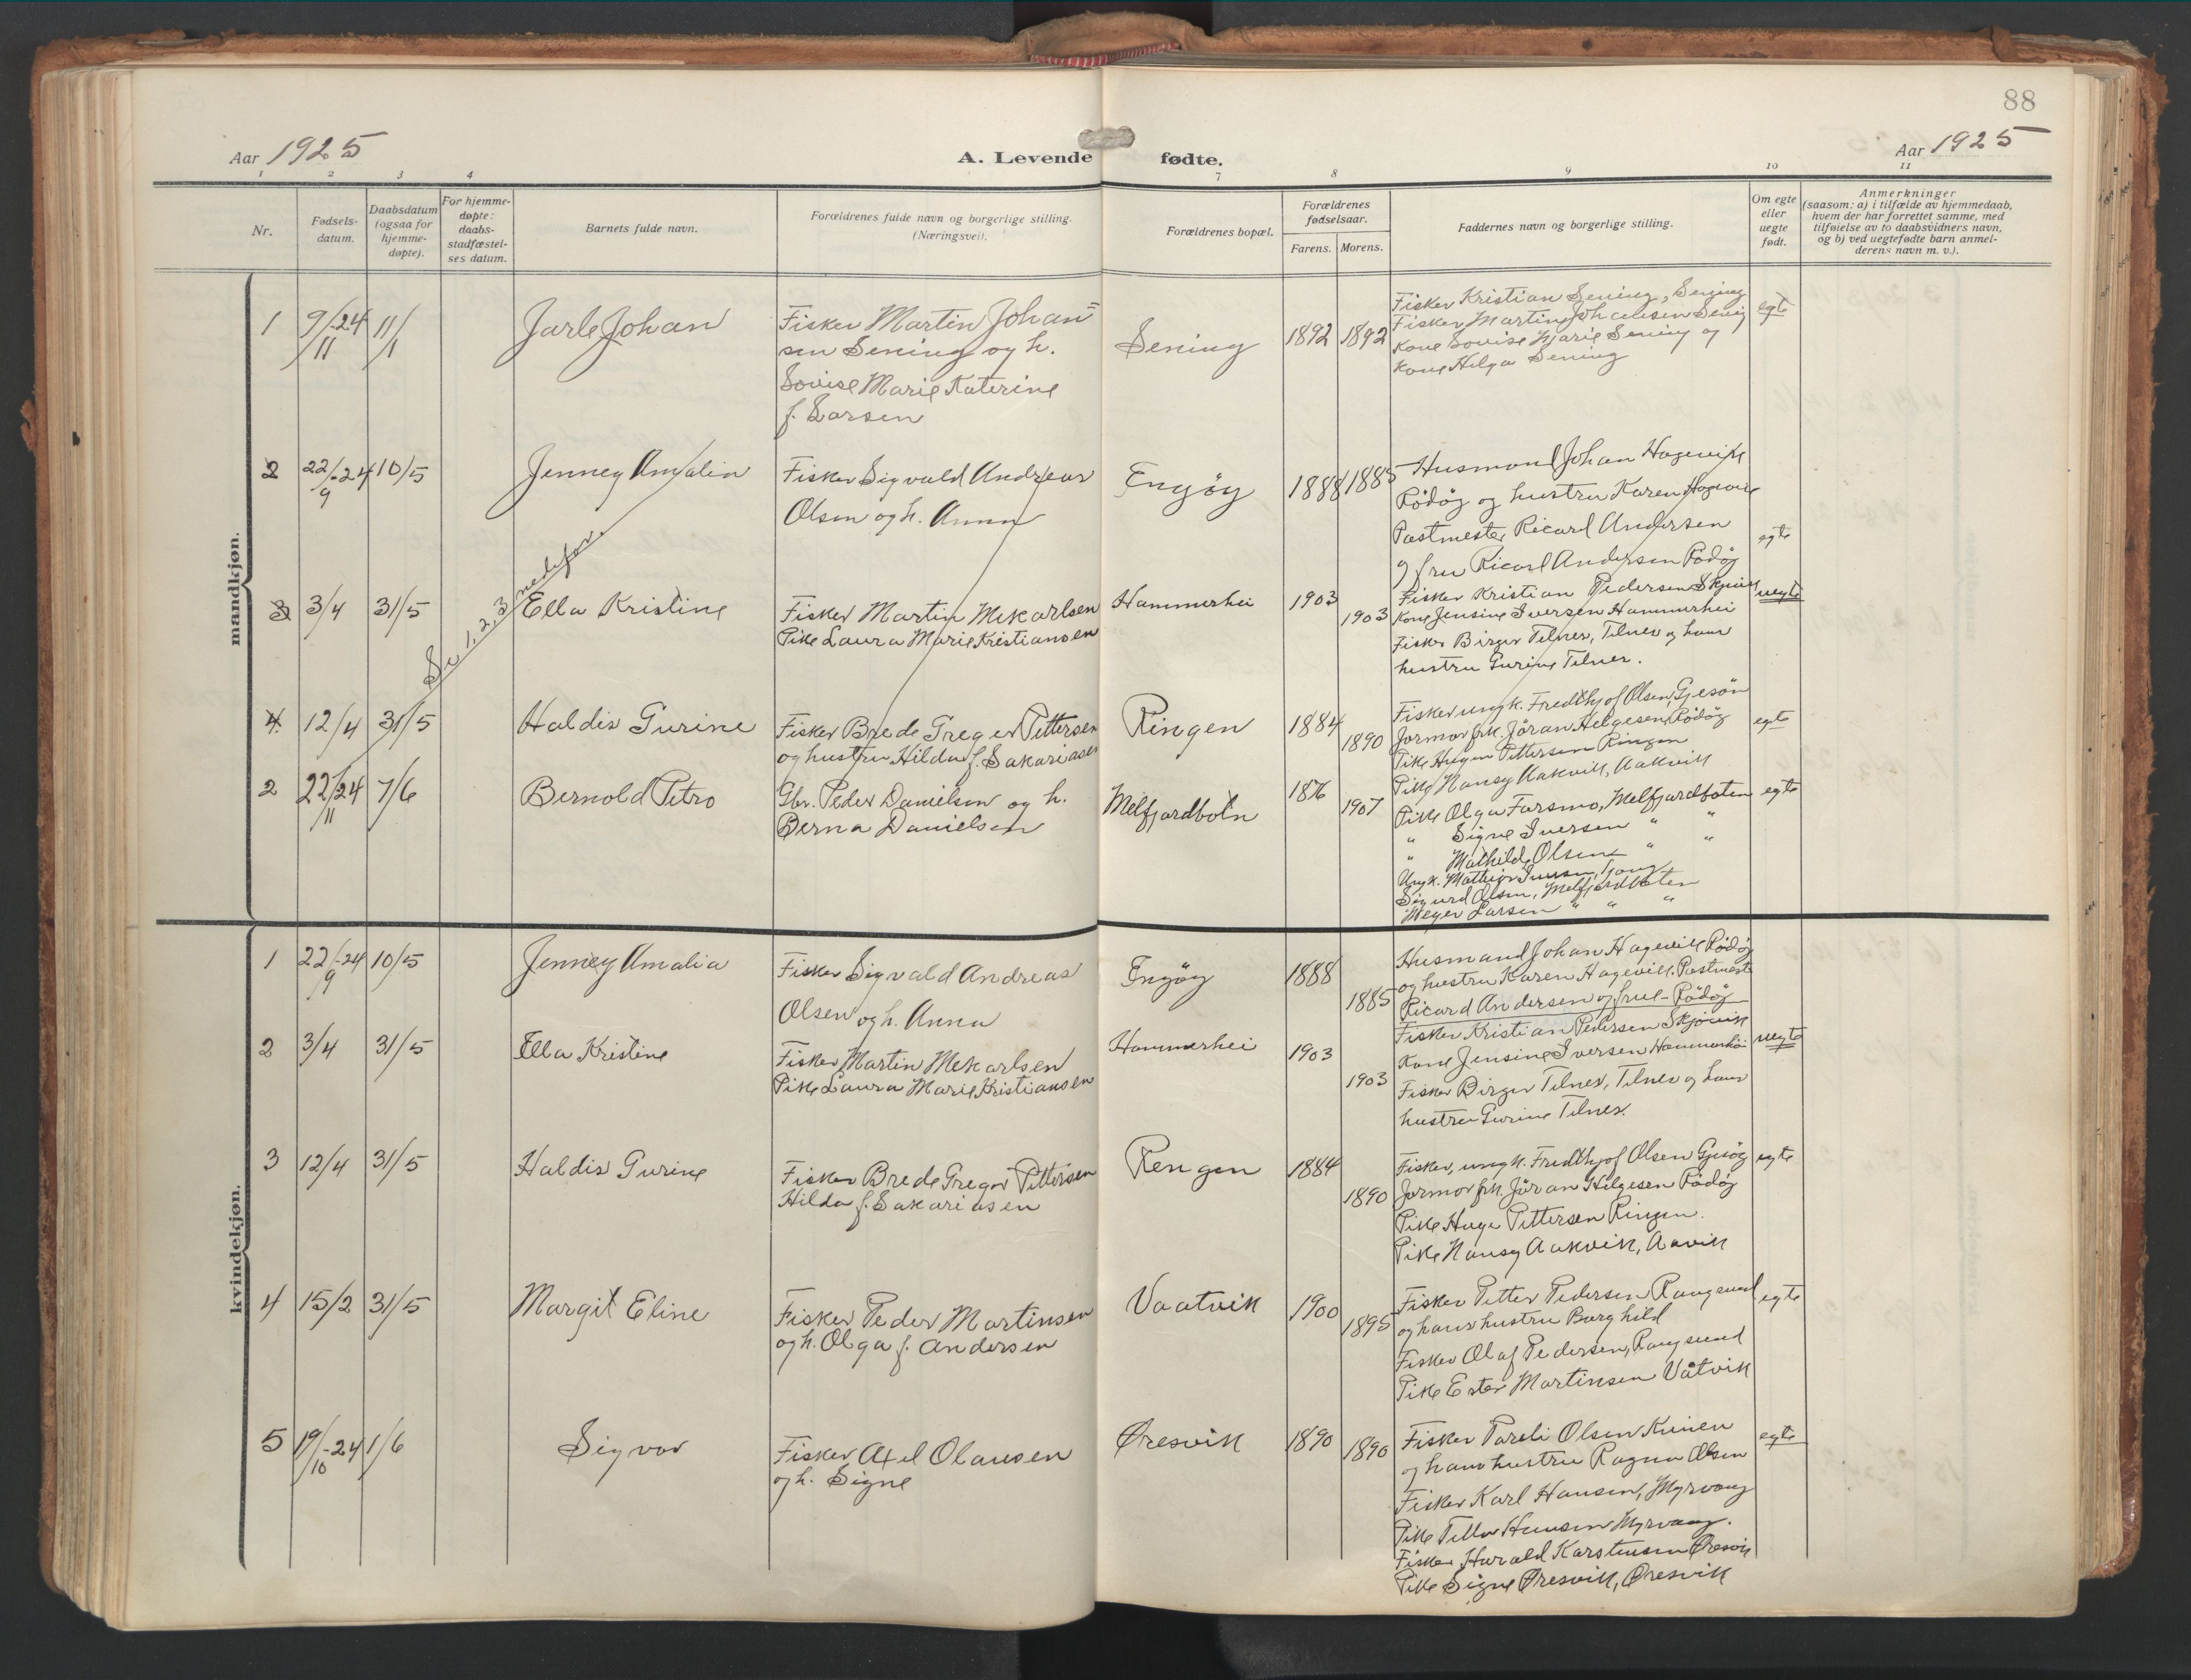 88
Aar 1925
A. Levende fødte.
Aar 1925
1 2 3 4 7 8 9 10 11
Nr.
Fødsels-
datum.
Daabsdatum
(ogsaa for
hjemme-
døpte).
For hjemme-
døpte:
daabs-
stadfæstel-
ses datum.
Barnets fulde navn.
Forældrenes fulde navn og borgerlige stilling.
(Næringsvei).
Forældrenes bopæl.
Forældrenes
fødselsaar.
Farens. Morens.
Faddernes navn og borgerlige stilling.
Om egte
eller
uegte
født.
Anmerkninger
(saasom: a) i tilfælde av hjemmedaab,
hvem der har forrettet samme, med
tilføielse av to daabsvidners navn,
og b) ved uegtefødte barn anmel-
derens navn m. v.).
mandkjøn.
1 9/11-24 11/1 Jarle Johan
Fisker Martin Johan=
sen Sening og h.
Lovise Marie Katerine
f. Larsen
Sening 1892 1892
Fisker Kristian Sening, Sening
Fisker Martin Johansen Sening
Kone Lovise Marie Sening og
Kone Helga Sening
egte
2 22/9-24 10/5 Jenney Amalia
Fisker Sigvald Andreas
Olsen og h. Anna
Engøy 1888 1885
Husmand Johan Hagevik
Rödöy og hustru Karen Hagevik
Postmester Ricard Andersen
og fru Ricard Andersen Rödöy
egte
Se 1, 2, 3 nedefor.
3 3/4 31/5 Ella Kristine
Fisker Martin Mekarlsen
Pike Laura Marie Kristiansen
Hammerhei 1903 1903
Fisker Kristian Pedersen Skjövik
Kone Jensine Iversen Hammerhei
Fisker Birger Telnes, Telnes og hans
hustru Gurine Telnes.
uegte
4. 12/4 31/5 Haldis Gurine
Fisker Brede Greger Pettersen
og hustru Hilda f. Sakariasen
Ringen 1884 1890
Fisker ungk. Fredthjof Olsen, Gjesöy
Jormor frk. Jöran Helgesen, Rödöy
Pike Hagen Pettersen Ringen
Pike Nansy Aakvik, Aakvik
egte
2 22/11-24 7/6 Bernold Petro
Gbr. Peder Danielsen og h.
Berna Danielsen
Melfjordbotn 1876 1907
Pike Olga Farsmo, Melfjordboten
" Signe Iversen " "
" Mathilde Olsen " "
Ungk. Mathias Iversen,
Sigurd Olsen, Melfjordboten
Meyer Larsen " " "
egte
kvindekjøn.
1 22/9-24 10/5 Jenney Amalia
Fisker Sigvald Andreas
Olsen og h. Anna
Engøy 1888 1885
Husmand Johan Hagevik Rödöy
og hustru Karen Hagevik. Postmester
Ricard Andersen og frue - Rödöy
2 3/4 31/5 Ella Kristine
Fisker Martin Mekarlsen
Pike Laura Marie Kristiansen
Hammerhei 1903 1903
Fisker Kristian Pedersen Skjövik
Kone Jensine Iversen Hammerhei
Fisker Birger Telnes, Telnes og hans
hustru Gurine Telnes.
uegte
3 12/4 31/5 Haldis Gurine
Fisker Brede Greger Pettersen
Hilda f. Sakariasen
Rengen 1884 1890
Fisker, ungk. Fredthjof Olsen Gjesöy
Jormor frk. Jöran Helgesen Rödöy
Pike Hage Pettersen Ringen.
Pike Nansy Aakvik, Aavik
egte
4 15/2 31/5 Margit Eline
Fisker Peder Martinsen
og h. Olga f. Andersen
Vaatvik 1900 1895
Fisker Petter Pedersen Rangsund
og hans hustru Borghild
Fisker Olaf Pedersen, Rangsund
Pike Ester Martinsen Våtvik
egte
5 19/10-24 1/6 Sigvor
Fisker Axel Olausen
og h. Signe
Øresvik 1890 1890
Fisker Pareli Olsen Kunen
og hans hustru Ragna Olsen
Fisker Karl Hansen, Myrvang
Pike Tilla Hansen Myrvang.
Fisker Harald Karstensen Øresvik
Pike Signe Øresvik, Øresvik
egte